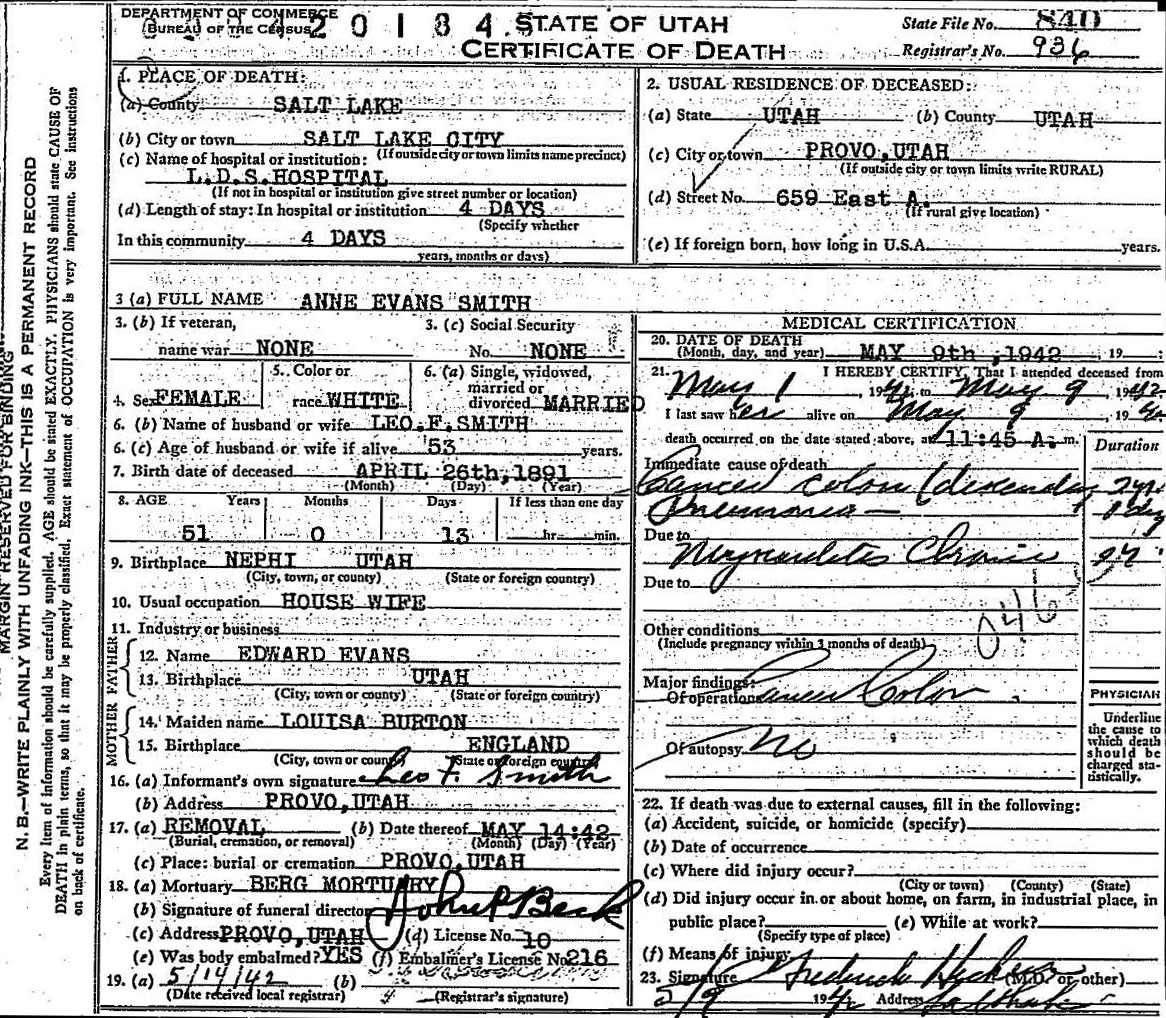 DEPARTMENT OF COMMERCE
BUREAU OF THE CENSUS
2 0 1 8 4
STATE OF UTAH
CERTIFICATE OF DEATH
State File No. 840
Registrar's No. 936
MARGIN RESERVED FOR BINDING
N. B—WRITE PLAINLY WITH UNFADING INK—THIS IS A PERMANENT RECORD
Every item of information should be carefully supplied. AGE should be stated EXACTLY. PHYSICIANS should state CAUSE OF
DEATH in plain terms, so that it may be properly classified. Exact statement of OCCUPATION is very important. See Instructions
on back of certificate.
1. PLACE OF DEATH:
(a) County SALT LAKE
(b) City or town SALT LAKE CITY
(If outside city or town limits name precinct)
(c) Name of hospital or institution:
L.D.S.HOSPITAL
(If not in hospital or institution give street number or location)
(d) Length of stay: In hospital or institution 4 DAYS
(Specify whether
In this community 4 DAYS
years, months or days)
2. USUAL RESIDENCE OF DECEASED:
(a) State UTAH (b) County UTAH
(c) City or town PROVO,UTAH
(If outside city or town limits write RURAL)
(d) Street No. 659 East A.
(If rural give location)
(e) If foreign born, how long in U.S.A. years.
3 (a) FULL NAME ANNE EVANS SMITH
3. (b) If veteran, 3. (c) Social Security
name war NONE No. NONE
5. Color or 6. (a) Single, widowed,
married or
4. Sex FEMALE race WHITE divorced MARRIED
6. (b) Name of husband or wife LEO.F.SMITH
6. (c) Age of husband or wife if alive 53 years.
7. Birth date of deceased APRIL 26th,1891
(Month) (Day) (Year)
8. AGE Years Months Days If less than one day
51 0 13 hr. min.
9. Birthplace NEPHI UTAH
(City, town, or county) (State or foreign country)
10. Usual occupation HOUSE WIFE
11. Industry or business
FATHER
12. Name EDWARD EVANS
13. Birthplace UTAH
(City, town or county) (State or foreign country)
MOTHER
14. Maiden name LOUISA BURTON
15. Birthplace ENGLAND
(City, town or county) (State or foreign country)
16. (a) Informant's own signature Leo F. Smith
(b) Address PROVO,UTAH
17. (a) REMOVAL (b) Date thereof MAY 14:42
(Burial, cremation, or removal) (Month) (Day) (Year)
(c) Place: burial or cremation PROVO,UTAH
18. (a) Mortuary BERG MORTUARY
(b) Signature of funeral director John P Beck
(c) Address PROVO,UTAH (d) License No. 10
(e) Was body embalmed? YES (f) Embalmer's License No 216
19. (a) 5/14/42 (b)
(Date received local registrar) (Registrar's signature)
MEDICAL CERTIFICATION
20. DATE OF DEATH
(Month, day, and year) MAY 9th ,1942 , 19 :
21. I HEREBY CERTIFY, That I attended deceased from
May 1 , 1942, to May 9 , 1942
I last saw her alive on May 9 , 1942
death occurred on the date stated above, at 11:45 A. m.
Duration
Immediate cause of death
Cancer Colon (descending 2 yrs
Pneumonia — 1 day
Due to
Myocarditis Chronic
Due to
046
Other conditions
(Include pregnancy within 3 months of death)
Major findings:
Of operation Cancer Colon
Of autopsy no
PHYSICIAN
Underline
the cause to
which death
should be
charged sta-
tistically.
22. If death was due to external causes, fill in the following:
(a) Accident, suicide, or homicide (specify)
(b) Date of occurrence
(c) Where did injury occur?
(City or town) (County) (State)
(d) Did injury occur in or about home, on farm, in industrial place, in
public place? (e) While at work?
(Specify type of place)
(f) Means of injury
23. Signature Frederick (M.D. or other)
5/9 1942 Address Salt Lake